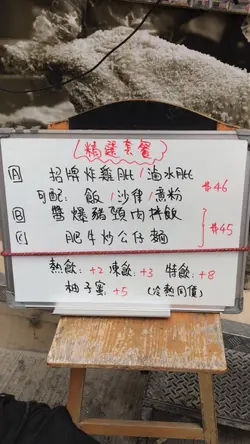 精選套餐
A 招牌炸雞髀/滷水髀
可配: 飯/沙律/煮粉 $46
B 醬爆豬頸肉拌飯
C 肥牛炒公仔麵 $45
熱飲: +2 凍飲: +3 特飲: +8
柚子蜜: +5 (冷熱同價)